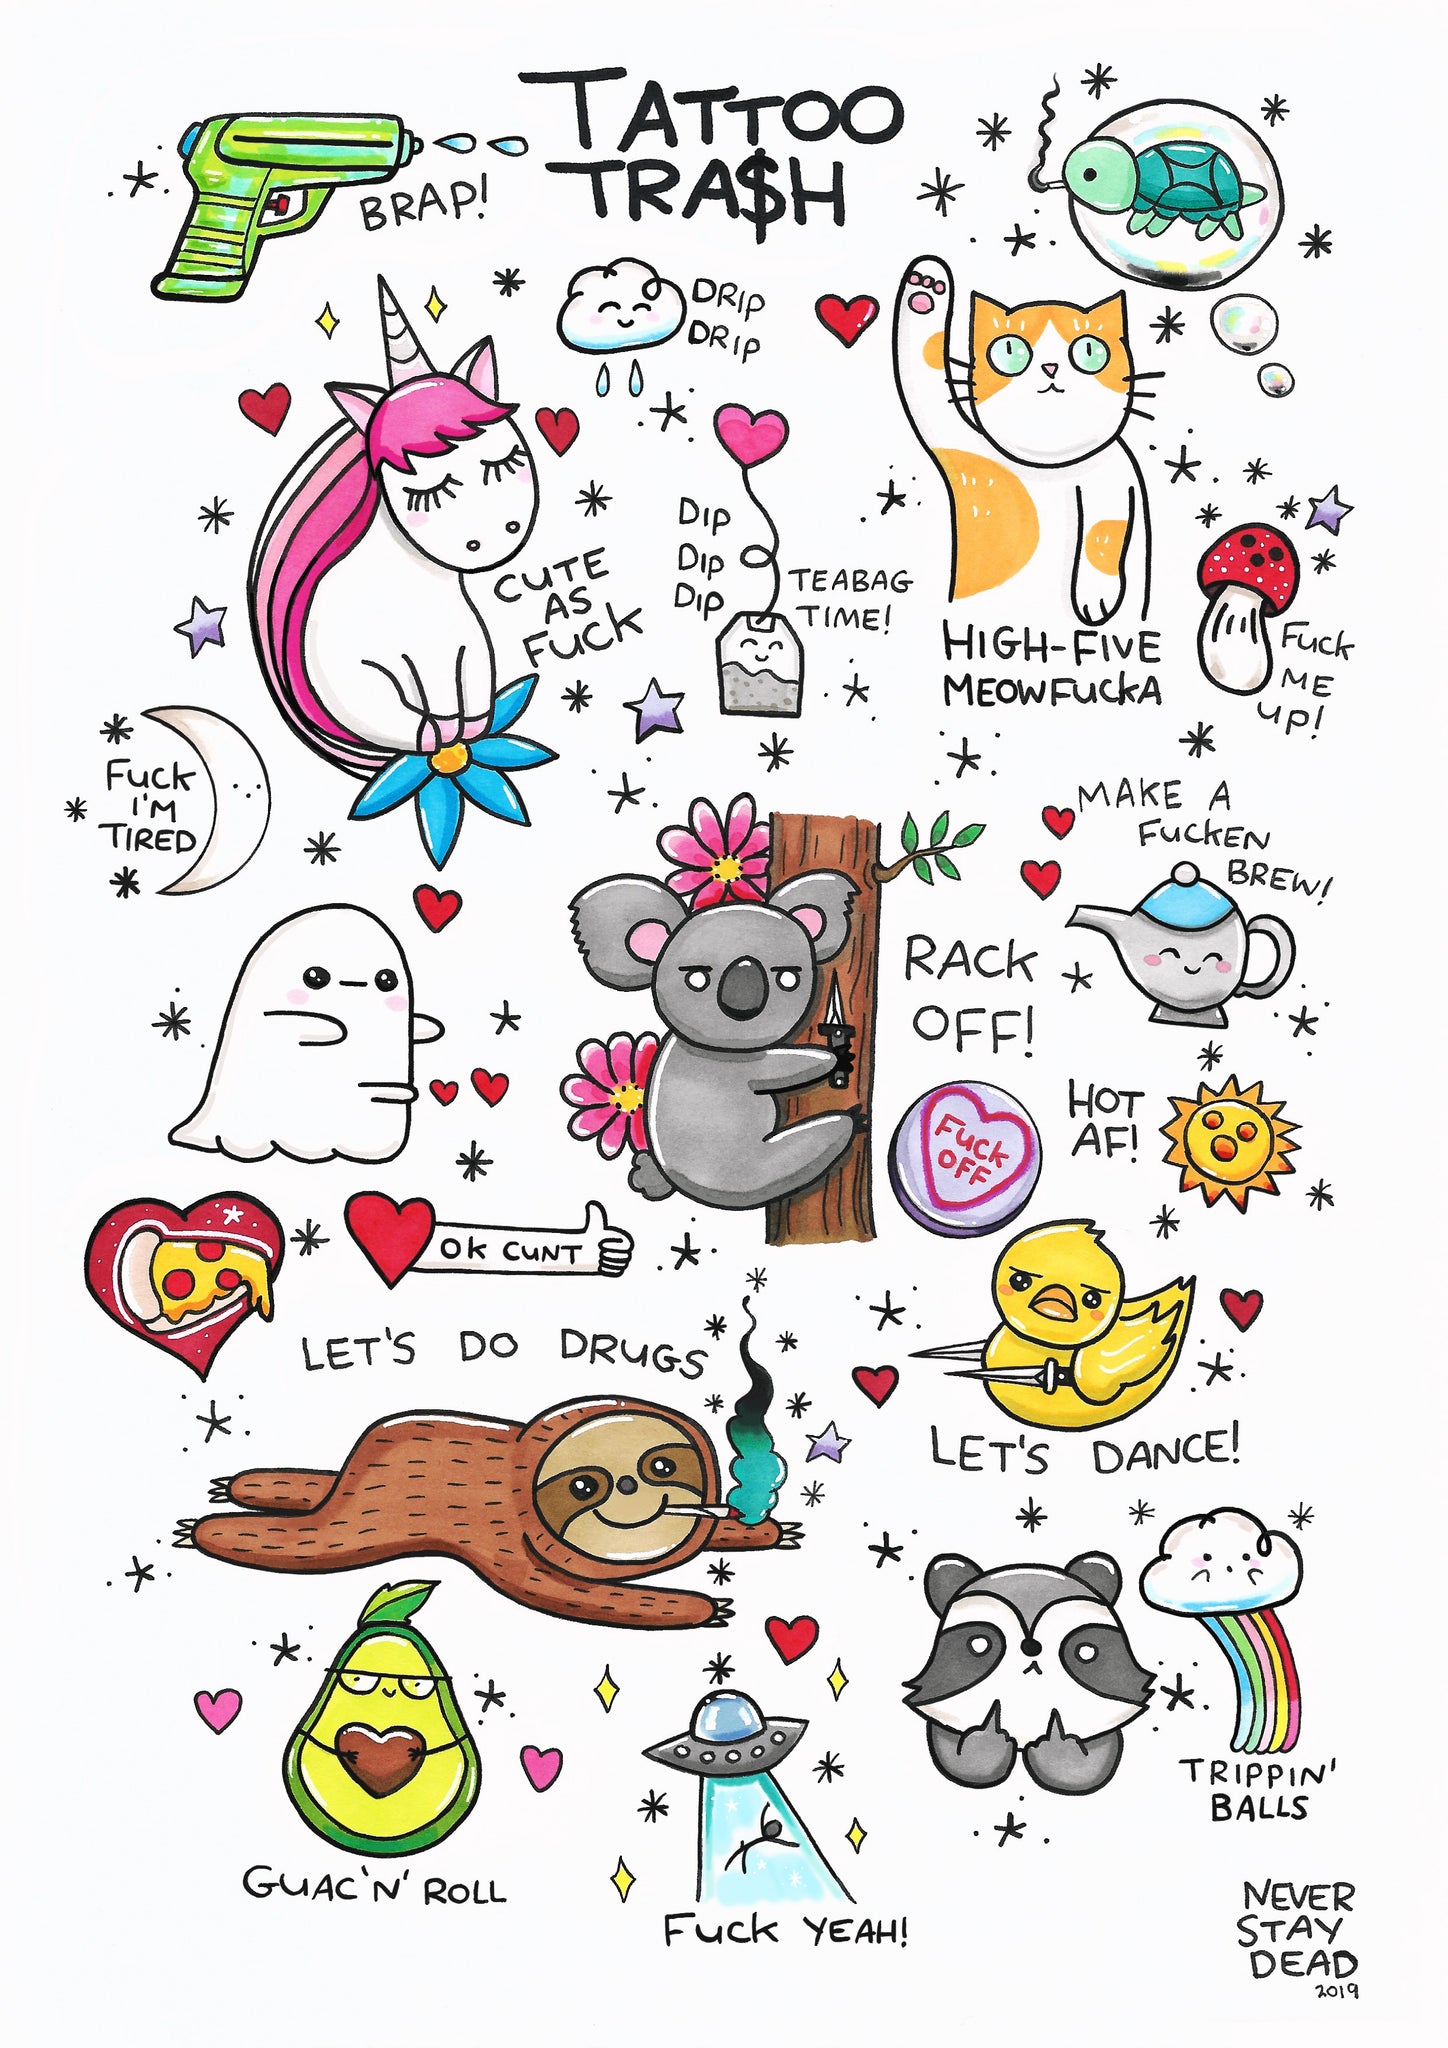 TATTOO
TRA$H
BRAP!
DRIP
DRIP
CUTE
AS
FUCK
DIP
DIP
DIP
TEABAG
TIME!
HIGH-FIVE
MEOWFUCKA
FUCK
ME
UP!
FUCK
I'M
TIRED
MAKE A
FUCKEN
BREW!
RACK
OFF!
FUCK
OFF
HOT
AF!
OK CUNT
LET'S DO DRUGS
LET'S DANCE!
TRIPPIN'
BALLS
GUAC'N' ROLL
FUCK YEAH!
NEVER
STAY
DEAD
2019